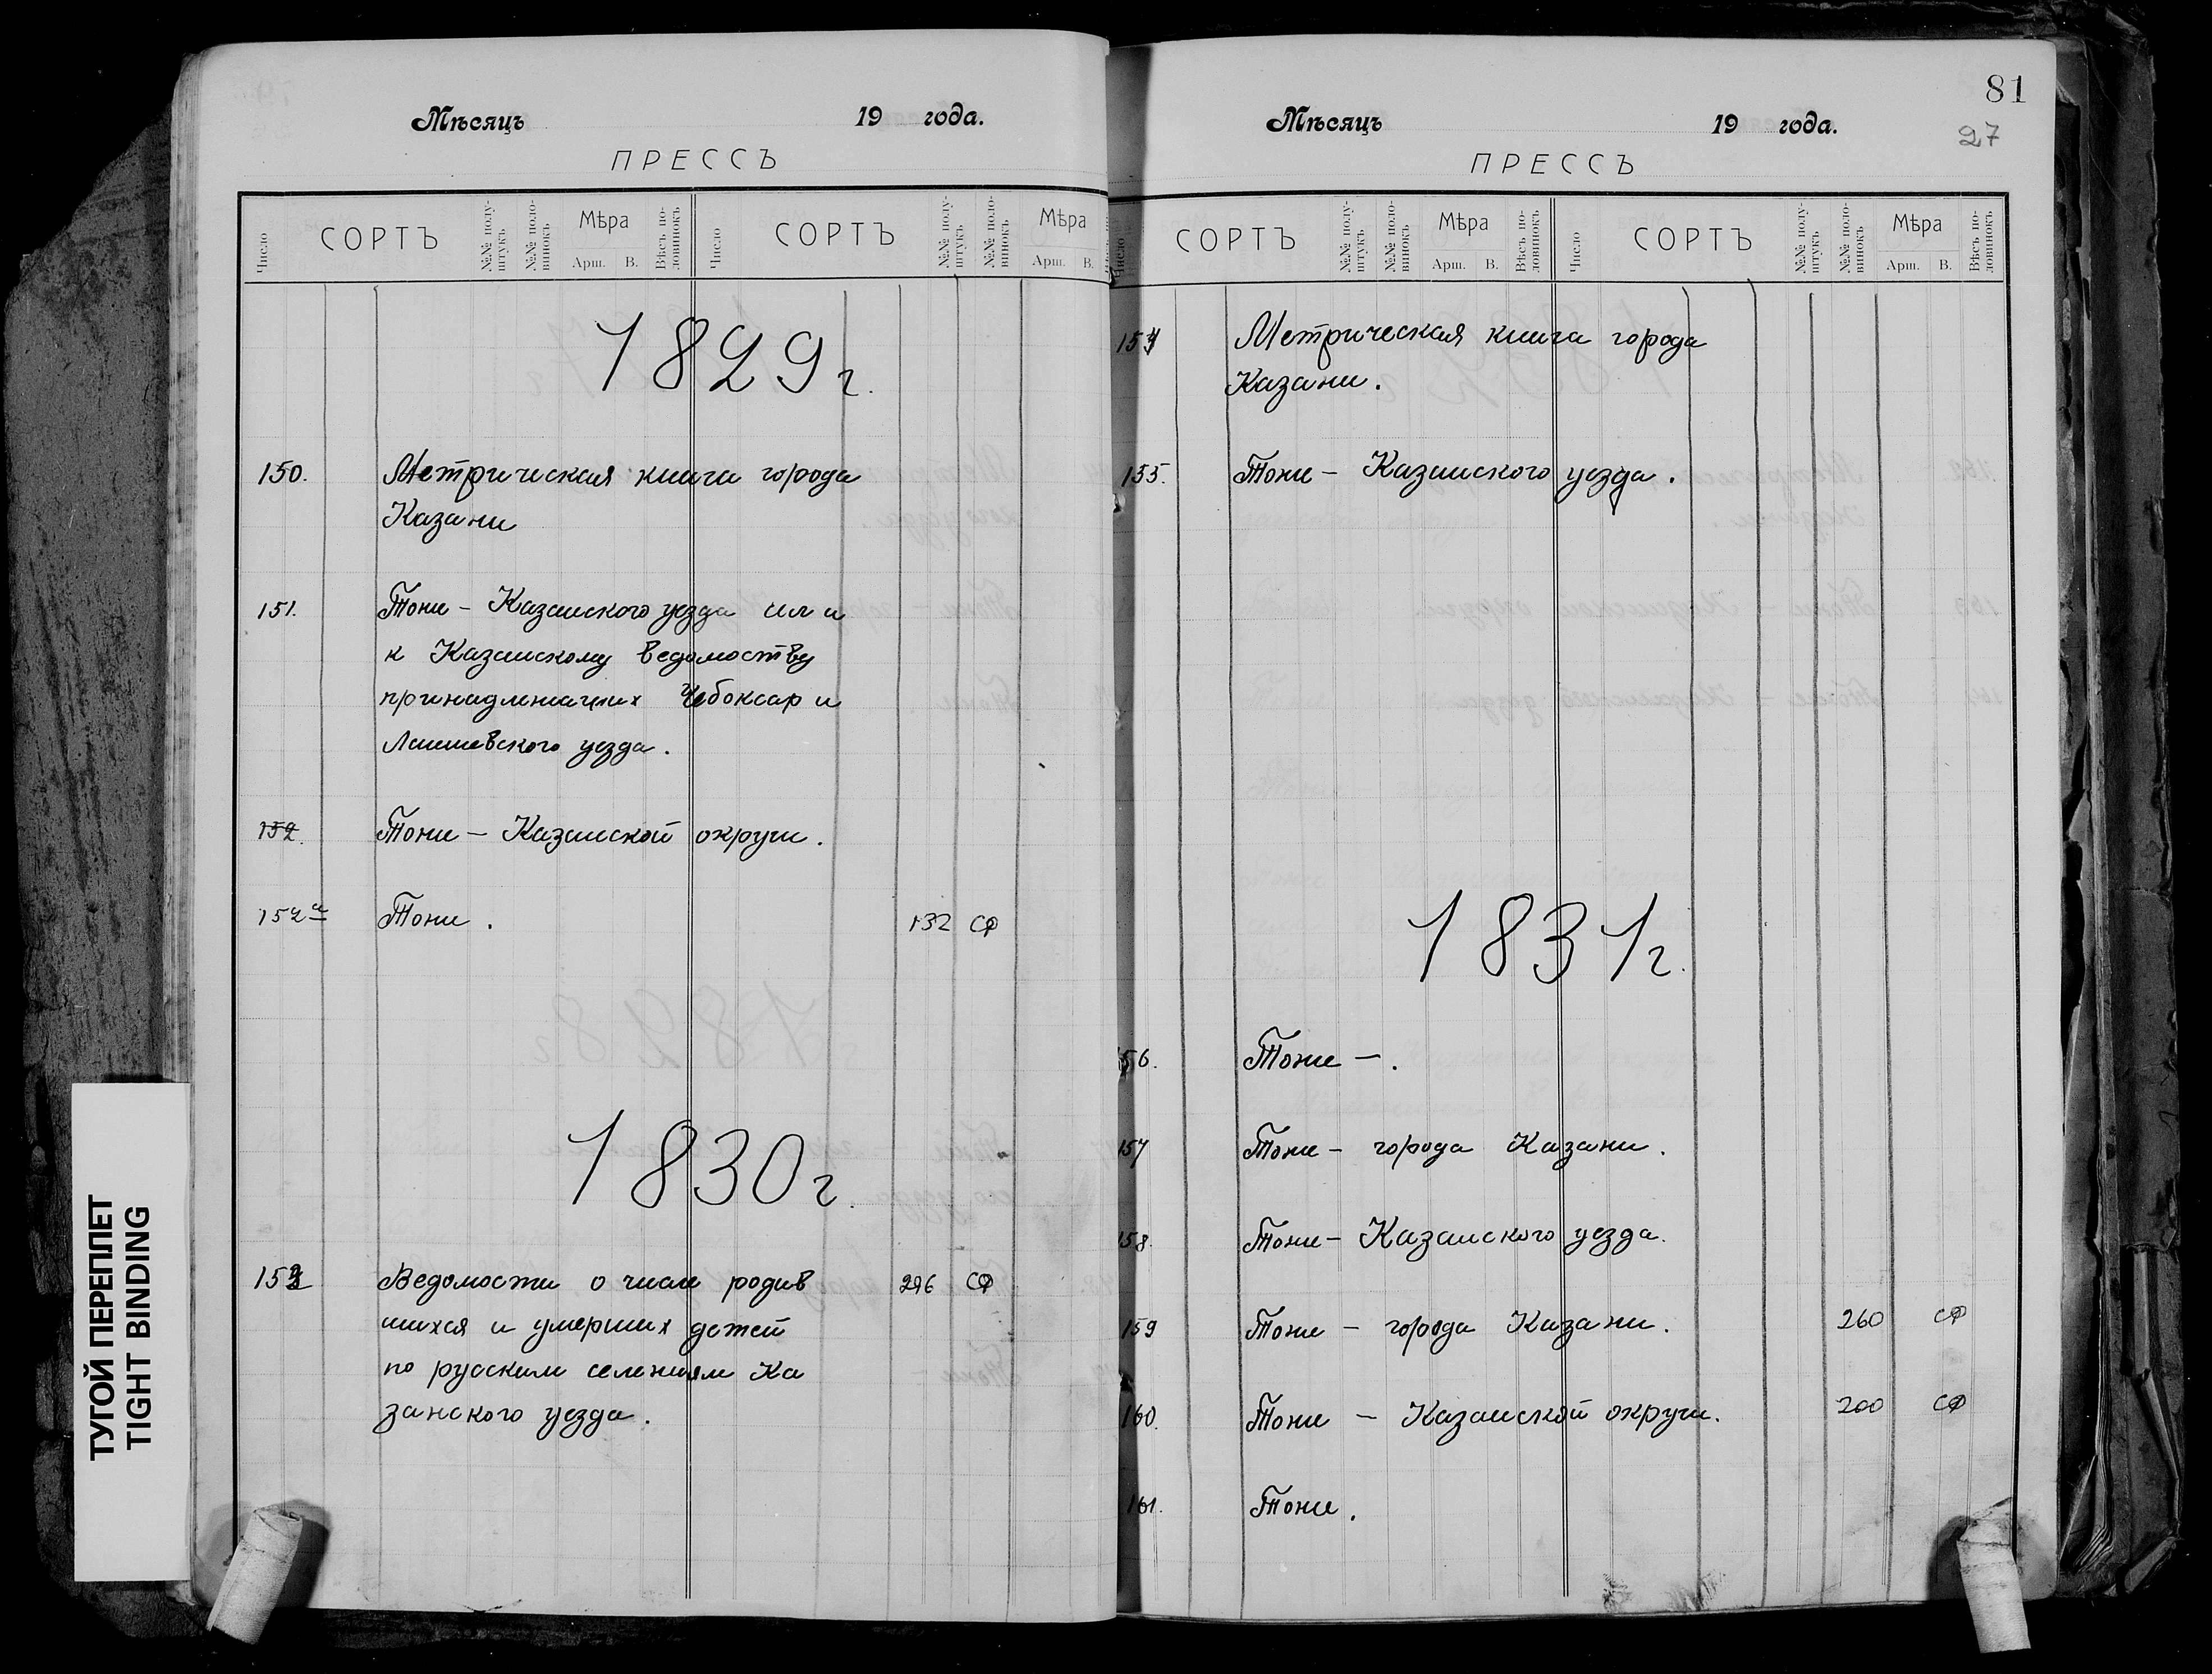 ТУГОЙ ПЕРЕПЛЕТ
TIGHT BINDING
Мѣсяцъ 19 года.
ПРЕССЪ
Число СОРТЪ №№ полу-штукъ №№ поло-винокъ Мѣра Арш. В. Вѣсъ по-ловинокъ Число СОРТЪ №№ полу-штукъ №№ поло-винокъ Мѣра Арш. В.
1829 г.
150. Метрическая книга города
Казани
151. Тоже - Казанского уезда или
к Казанскому ведомоству
принадлежащих Чебоксар и
Лаишевского уезда.
152. Тоже - Казанской округи.
152а Тоже. 132 СФ
1830 г.
153 Ведомости о числе родив
шихся и умерших детей 296 СФ
по русским селениям Ка
занского уезда.
81
27
Мѣсяцъ 19 года.
ПРЕССЪ
Число СОРТЪ №№ полу-штукъ №№ поло-винокъ Мѣра Арш. В. Вѣсъ по-ловинокъ Число СОРТЪ №№ полу-штукъ №№ поло-винокъ Мѣра Арш. В. Вѣсъ по-ловинокъ
154 Метрическая книга города
Казани.
155. Тоже - Казанского уезда.
1831 г.
156. Тоже - .
157 Тоже - города Казани.
158. Тоже - Казанского уезда.
159 Тоже - города Казани. 260 СФ
160. Тоже - Казанской округи. 200 СФ
161. Тоже.